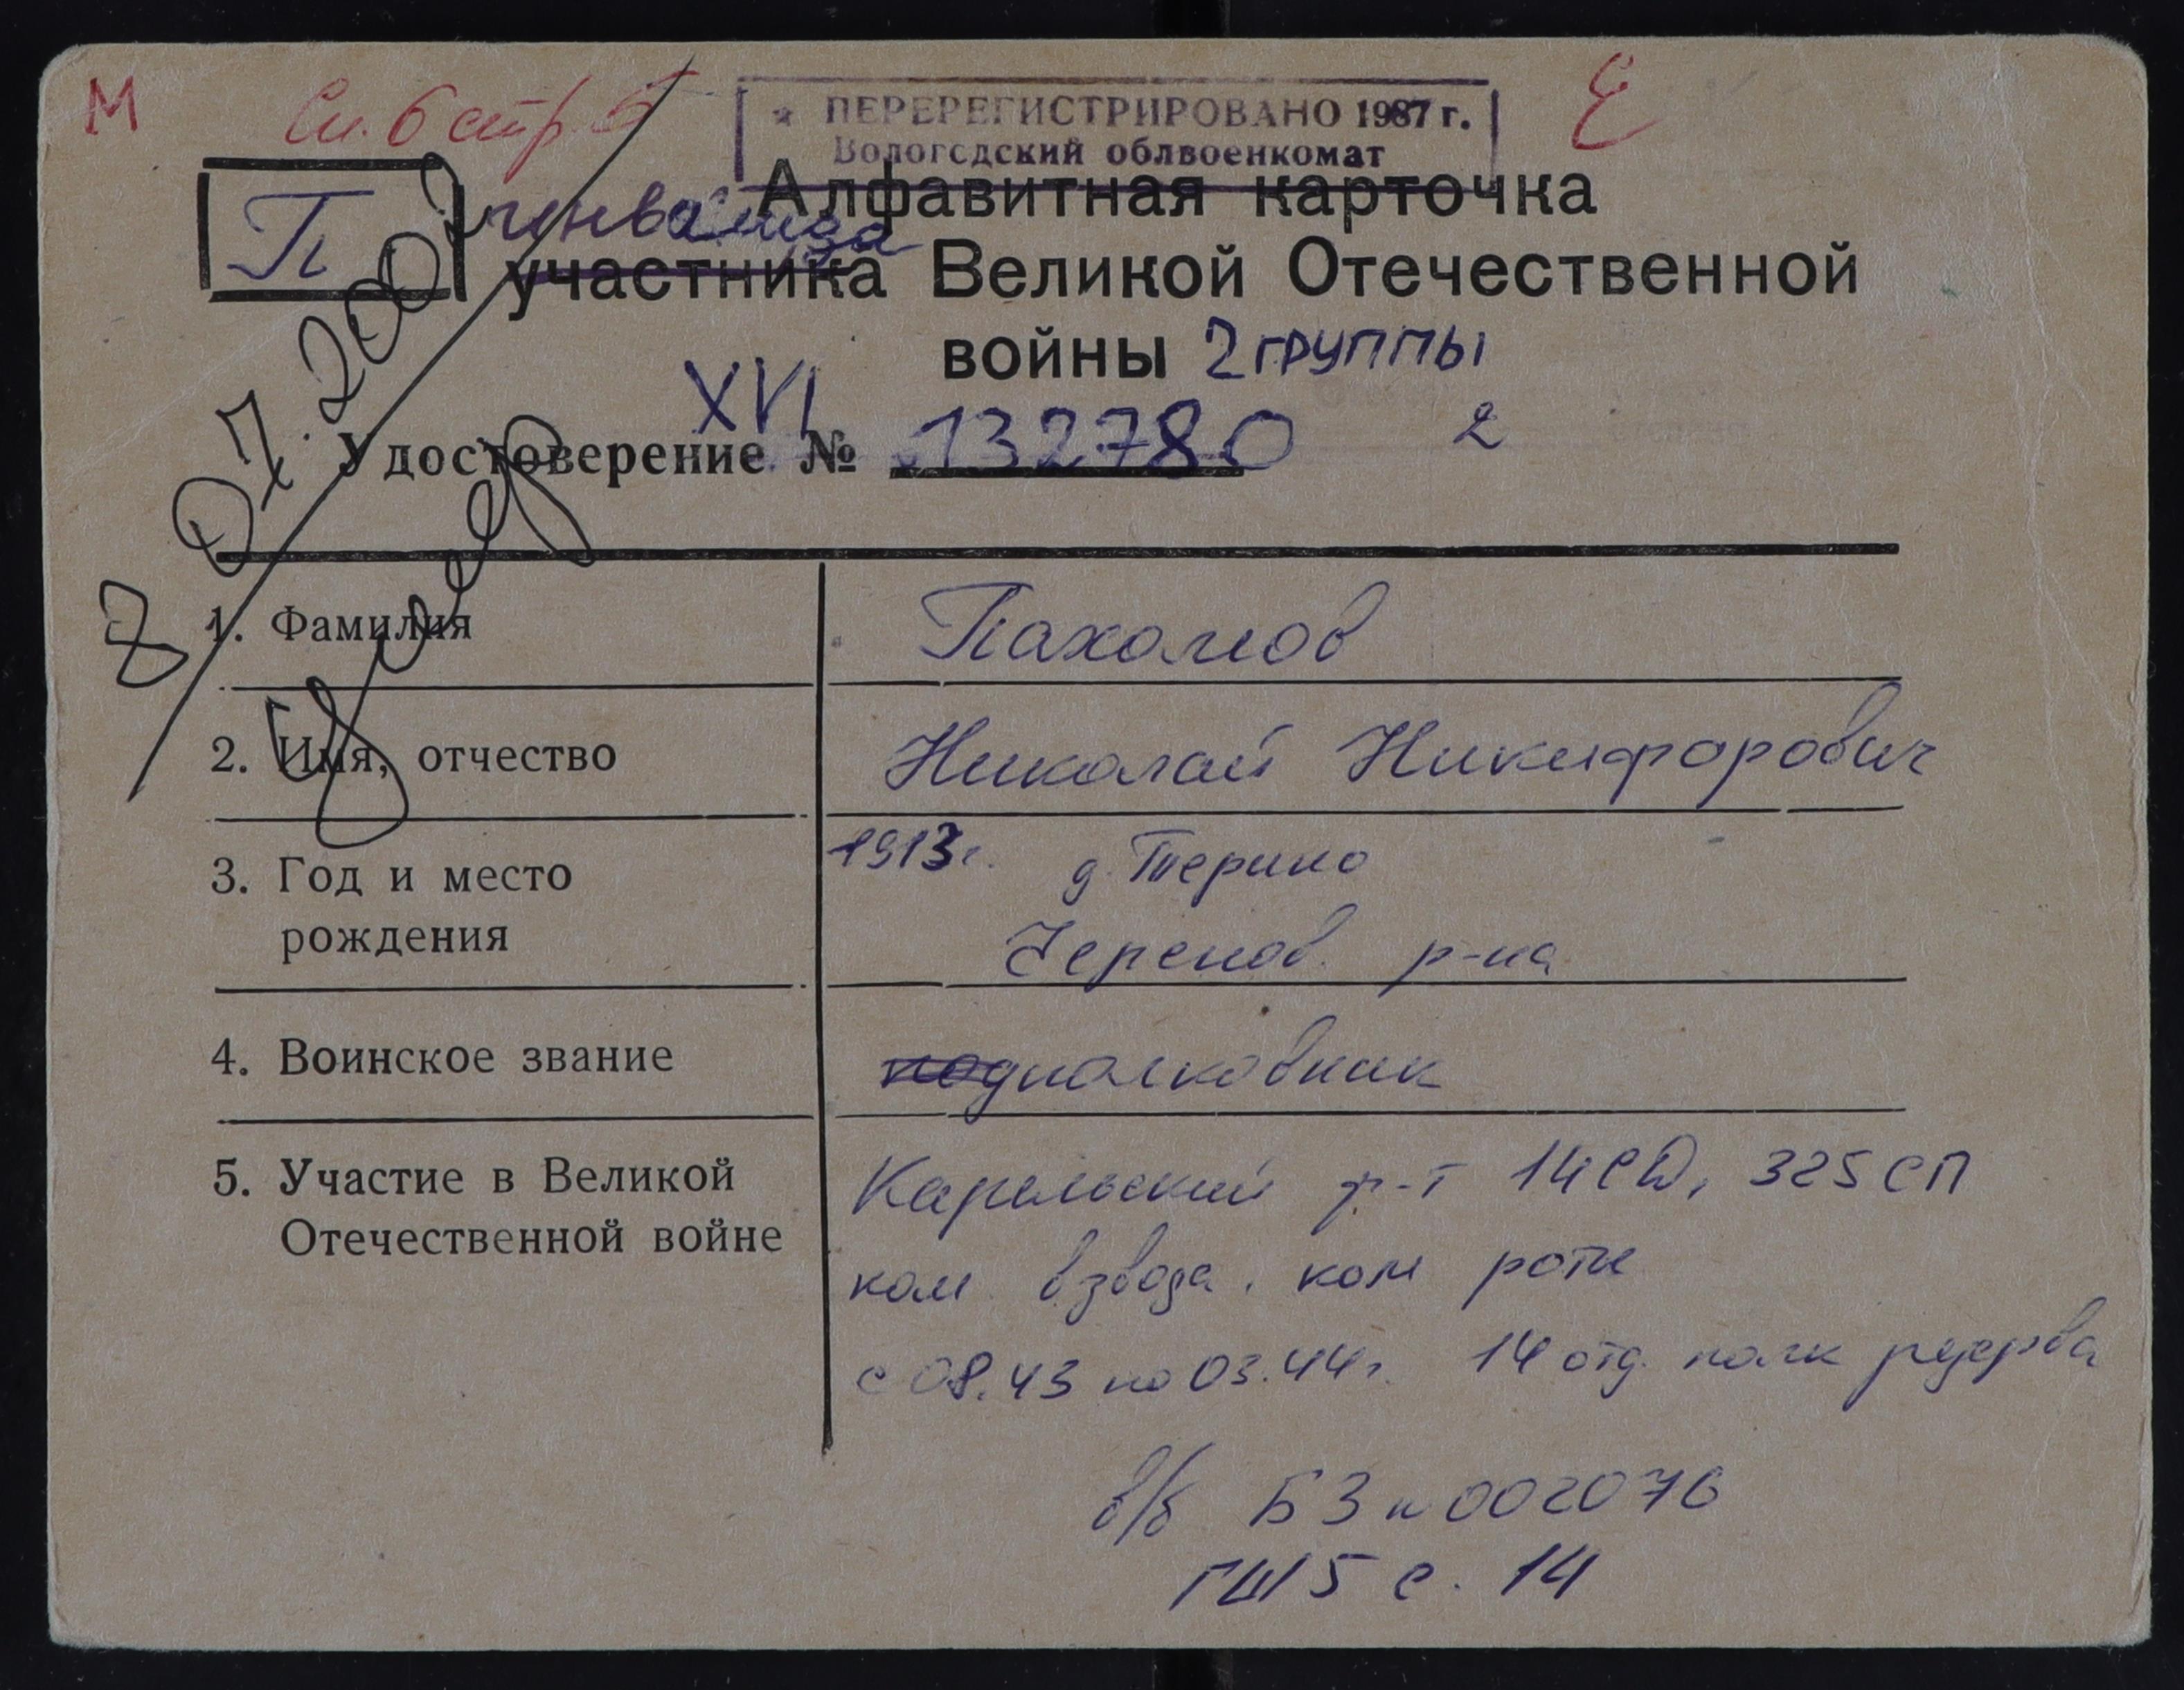 М Сп. 6 стр. 6 Е
ПЕРЕРЕГИСТРИРОВАНО 1987 г.
Вологодский облвоенкомат
П
Алфавитная карточка
участника Великой Отечественной
войны 2 группы
XVI
Удостоверение № 132780 2
8 07. 200
Умер
1. Фамилия Пахомов
2. Имя, отчество Николай Никифорович
3. Год и место 1913г. д. Терино
рождения Черепов. р-на
4. Воинское звание подполковник
5. Участие в Великой Карельский ф-т 14 СД, 325 СП
Отечественной войне ком взвода, ком роты
с 08.43 по 03.44г. 14 отд. полк резерва
в/б БЗ н 002076
ГШ 5 с. 14